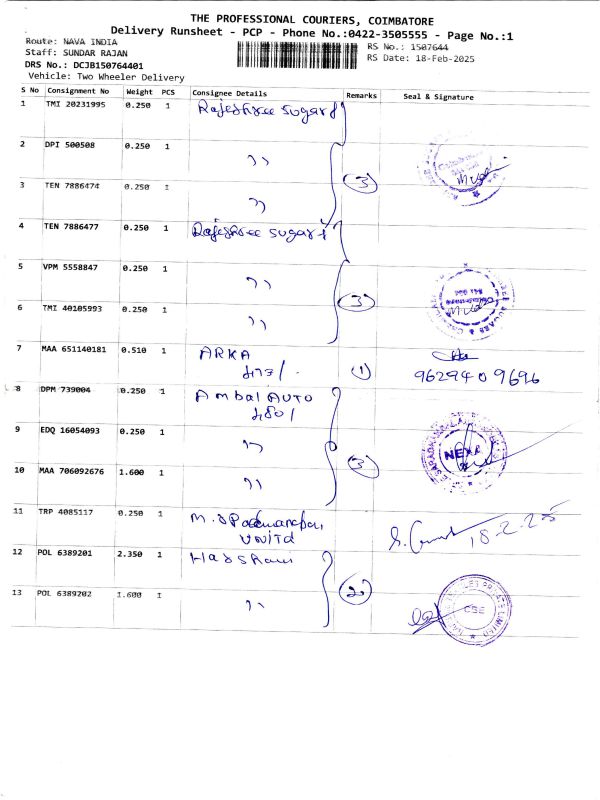 THE PROFESSIONAL COURIERS, COIMBATORE
Delivery Runsheet - PCP - Phone No.:0422-3505555 - Page No.:1
Route: NAVA INDIA
RS No.: 1507644
Staff: SUNDAR RAJAN
RS Date: 18-Feb-2025
DRS No.: DCJB150764401
Vehicle: Two Wheeler Delivery
S No Consignment No Weight PCS Consignee Details Remarks Seal & Signature
1 TMI 20231995 0.250 1 Rajeshree Sugars
2 DPI 500508 0.250 1 ,,
3 TEN 7886474 0.250 1 ,, (3)
4 TEN 7886477 0.250 1 Rajeshree Sugars
5 VPM 5558847 0.250 1 ,,
6 TMI 40105993 0.250 1 ,, (3)
7 MAA 651140181 0.510 1 ARKA (1)
9629409696
8 DPM 739004 0.250 1 Ambal AUTO
9 EDQ 16054093 0.250 1 ,, (3) NEXA
10 MAA 706092676 1.600 1 ,,
11 TRP 4085117 0.250 1 18-2-25
12 POL 6389201 2.350 1
13 POL 6389202 1.600 1 ,, (2) CBE